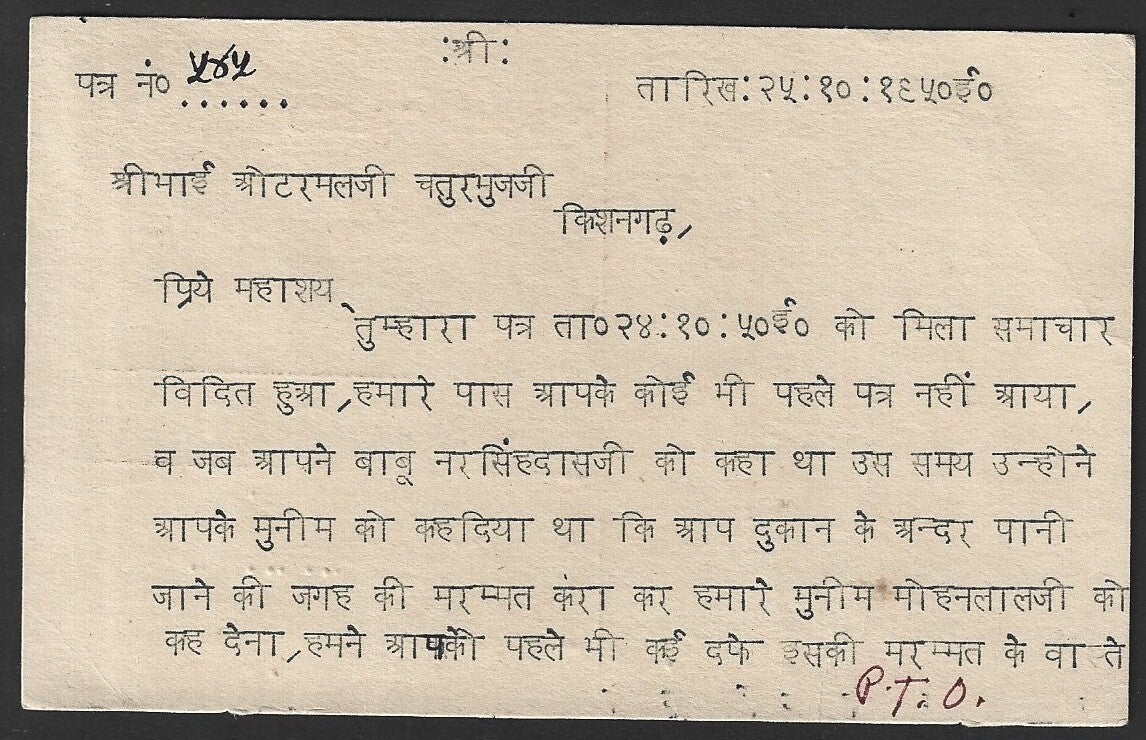 :श्री:
पत्र नं० ५४५
......
तारिख:२५:१०:१९५०ई०
श्रीभाई ओटरमलजी चतुरभुजजी
किशनगढ़,
प्रिये महाशय,
तुम्हारा पत्र ता०२४:१०:५०ई० को मिला समाचार
विदित हुआ,हमारे पास आपके कोई भी पहले पत्र नहीं आया,
व जब आपने बाबू नरसिंहदासजी को कहा था उस समय उन्होने
आपके मुनीम को कहदिया था कि आप दुकान के अन्दर पानी
जाने की जगह की मरम्मत करा कर हमारे मुनीम मोहनलालजी को
कह देना,हमने आपको पहले भी कई दफे इसकी मरम्मत के वास्ते
P.T.O.